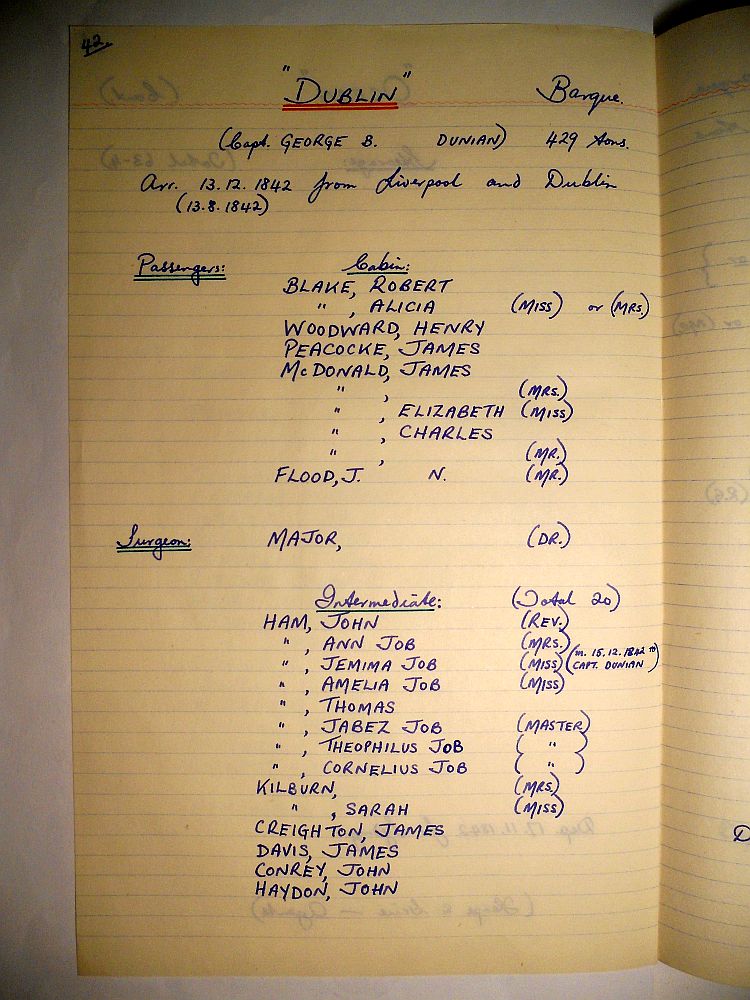 42.
"DUBLIN" Barque.
(Capt. GEORGE B. DUNIAN) 429 tons.
Arr. 13.12.1842 from Liverpool and Dublin
(13.8.1842)
Passengers: Cabin:
BLAKE, ROBERT
" , ALICIA (MISS) or (MRS)
WOODWARD, HENRY
PEACOCKE, JAMES
McDONALD, JAMES
" , (MRS.)
" , ELIZABETH (MISS)
" , CHARLES
" , (MR.)
FLOOD, J. N. (MR.)
Surgeon: MAJOR, (DR.)
Intermediate: (Total 20)
HAM, JOHN (REV.)
" , ANN JOB (MRS.)
" , JEMIMA JOB (MISS) (m. 15.12.1842 to CAPT. DUNIAN)
" , AMELIA JOB (MISS)
" , THOMAS
" , JABEZ JOB (MASTER)
" , THEOPHILUS JOB ( " )
" , CORNELIUS JOB ( " )
KILBURN, (MRS.)
" , SARAH (MISS)
CREIGHTON, JAMES
DAVIS, JAMES
CONREY, JOHN
HAYDON, JOHN
D